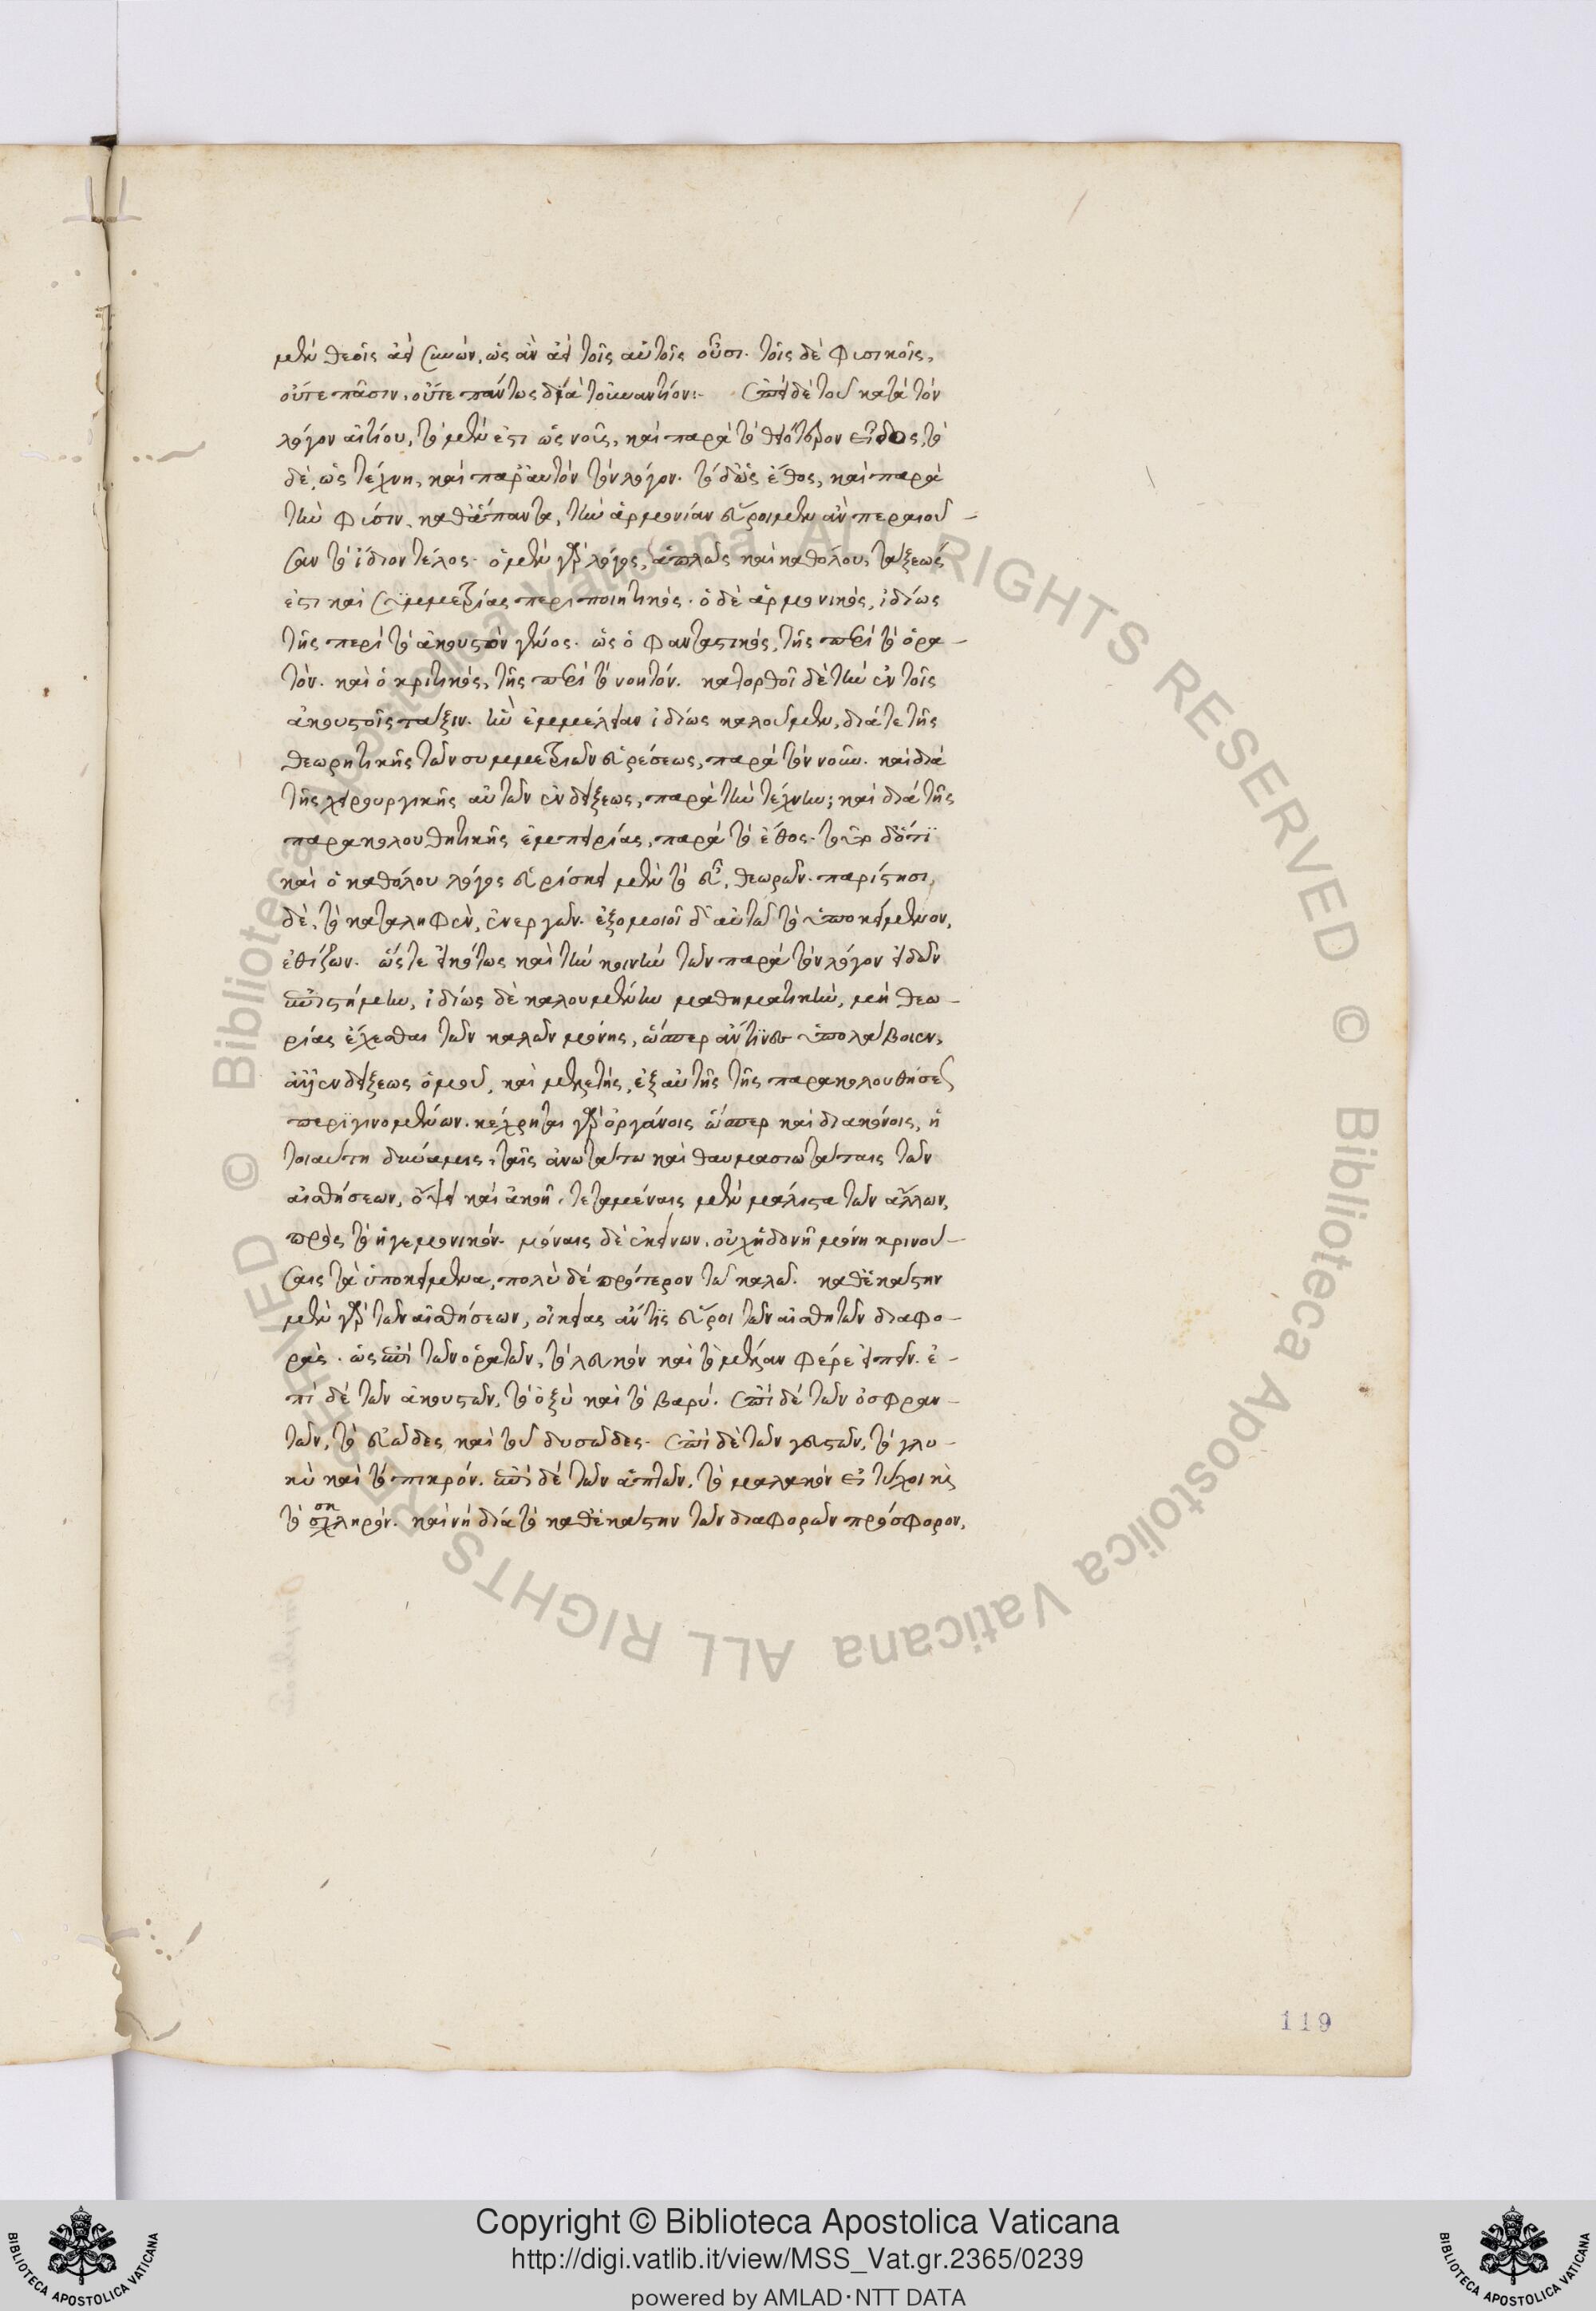 μὲν θεοῖς ἀεὶ συνὸν, ὡς ἂν ἀεὶ τοῖς αὐτοῖς οὖσι. τοῖς δὲ φυσικοῖς,
οὔτε πᾶσιν, οὔτε πάντως διὰ τοὐναντίον:- ἐπεὶ δὲ τοῦ κατὰ τὸν
λόγον αἰτίου, τὸ μέν ἐστι ὡς νοῦς, καὶ παρὰ τὸ θειότερον εἶδος, τὸ
δὲ, ὡς τέχνη, καὶ παρ' αὐτὸν τὸν λόγον. τὸ δ' ὡς ἔθος, καὶ παρὰ
τὴν φύσιν. καθάπαντα, τὴν ἁρμονίαν εὕροιμεν ἂν περαιοῦ-
σαν τὸ ἴδιον τέλος. ὁ μὲν γὰρ λόγος, ἁπλῶς καὶ καθόλου, τάξεώς
ἐστι καὶ συμμετρίας περιποιητικός. ὁ δὲ ἁρμονικός, ἰδίως
τῆς περὶ τὸ ἀκουστὸν γένος. ὡς ὁ φανταστικός, τῆς περὶ τὸ ὁρα-
τόν. καὶ ὁ κριτικός, τῆς περὶ τὸ νοητόν. κατορθοῖ δὲ τὴν ἐν τοῖς
ἀκουστοῖς τάξιν. ἣν ἐμμέλειαν ἰδίως καλοῦμεν, διά τε τῆς
θεωρητικῆς τῶν συμμετριῶν εὑρέσεως, παρὰ τὸν νοῦν. καὶ διὰ
τῆς χειρουργικῆς αὐτῶν ἐνδείξεως, παρὰ τὴν τέχνην; καὶ διὰ τῆς
παρακολουθητικῆς ἐμπειρίας, παρὰ τὸ ἔθος.
καὶ ὁ καθόλου λόγος εὑρίσκει μὲν τὸ εὖ, θεωρῶν. παρίστησι,
δὲ, τὸ καταληφθὲν, ἐνεργῶν. ἐξομοιοῖ δ' αὐτῶ τὸ ὑποκείμενον,
ἐθίζων. ὥστε εἰκότως καὶ τὴν κοινὴν τῶν παρὰ τὸν λόγον εἰδῶν
ἐπιστήμην, ἰδίως δὲ καλουμένην μαθηματικὴν, μὴ θεω-
ρίας ἔχεσθαι τῶν καλῶν μόνης, ὥσπερ ἄν τινες ὑπολάβοιεν,
ἀλλ' ἐνδείξεως ὁμοῦ, καὶ μελέτης, ἐξ αὐτῆς τῆς παρακολουθήσεως
περιγινομένων. κέχρηται γὰρ ὀργάνοις ὥσπερ καὶ διακόνοις, ἡ
τοιαύτη δύναμις, ταῖς ἀνωτάτω καὶ θαυμασιωτάταις τῶν
αἰσθήσεων, ὄψει καὶ ἀκοῆ, τεταμέναις μὲν μάλιστα τῶν ἄλλων,
πρὸς τὸ ἡγεμονικόν. μόναις δὲ ἐκείνων. οὐχ ἡδονῆ μόνη κρινού-
σαις τὰ ὑποκείμενα, πολὺ δὲ πρότερον τῶ καλῶ. καθ' ἑκάστην
μὲν γὰρ τῶν αἰσθήσεων, οἰκείας ἄν τις εὕροι τῶν αἰσθητῶν διαφο-
ρὰς. ὡς ἐπὶ τῶν ὁρατῶν, τὸ λευκὸν καὶ τὸ μέλαν φέρε εἰπεῖν. ἐ-
πὶ δὲ τῶν ἀκουστῶν, τὸ ὀξὺ καὶ τὸ βαρύ. ἐπὶ δὲ τῶν ὀσφραν-
τῶν, τὸ εὐῶδες καὶ τοῦ δυσῶδες. ἐπὶ δὲ τῶν γευστῶν, τὸ γλυ-
κὺ καὶ τὸ πικρόν. ἐπὶ δὲ τῶν ἁπτῶν, τὸ μαλακὸν εἰ τύχοι καὶ
τὸ σκληρόν. καὶ νὴ δία τὸ καθ' ἑκάστην τῶν διαφορῶν πρόσφορον,
119
Copyright © Biblioteca Apostolica Vaticana
http://digi.vatlib.it/view/MSS_Vat.gr.2365/0239
powered by AMLAD·NTT DATA
BIBLIOTECA APOSTOLICA VATICANA
BIBLIOTECA APOSTOLICA VATICANA
© Biblioteca Apostolica Vaticana ALL RIGHTS RESERVED
© Biblioteca Apostolica Vaticana ALL RIGHTS RESERVED